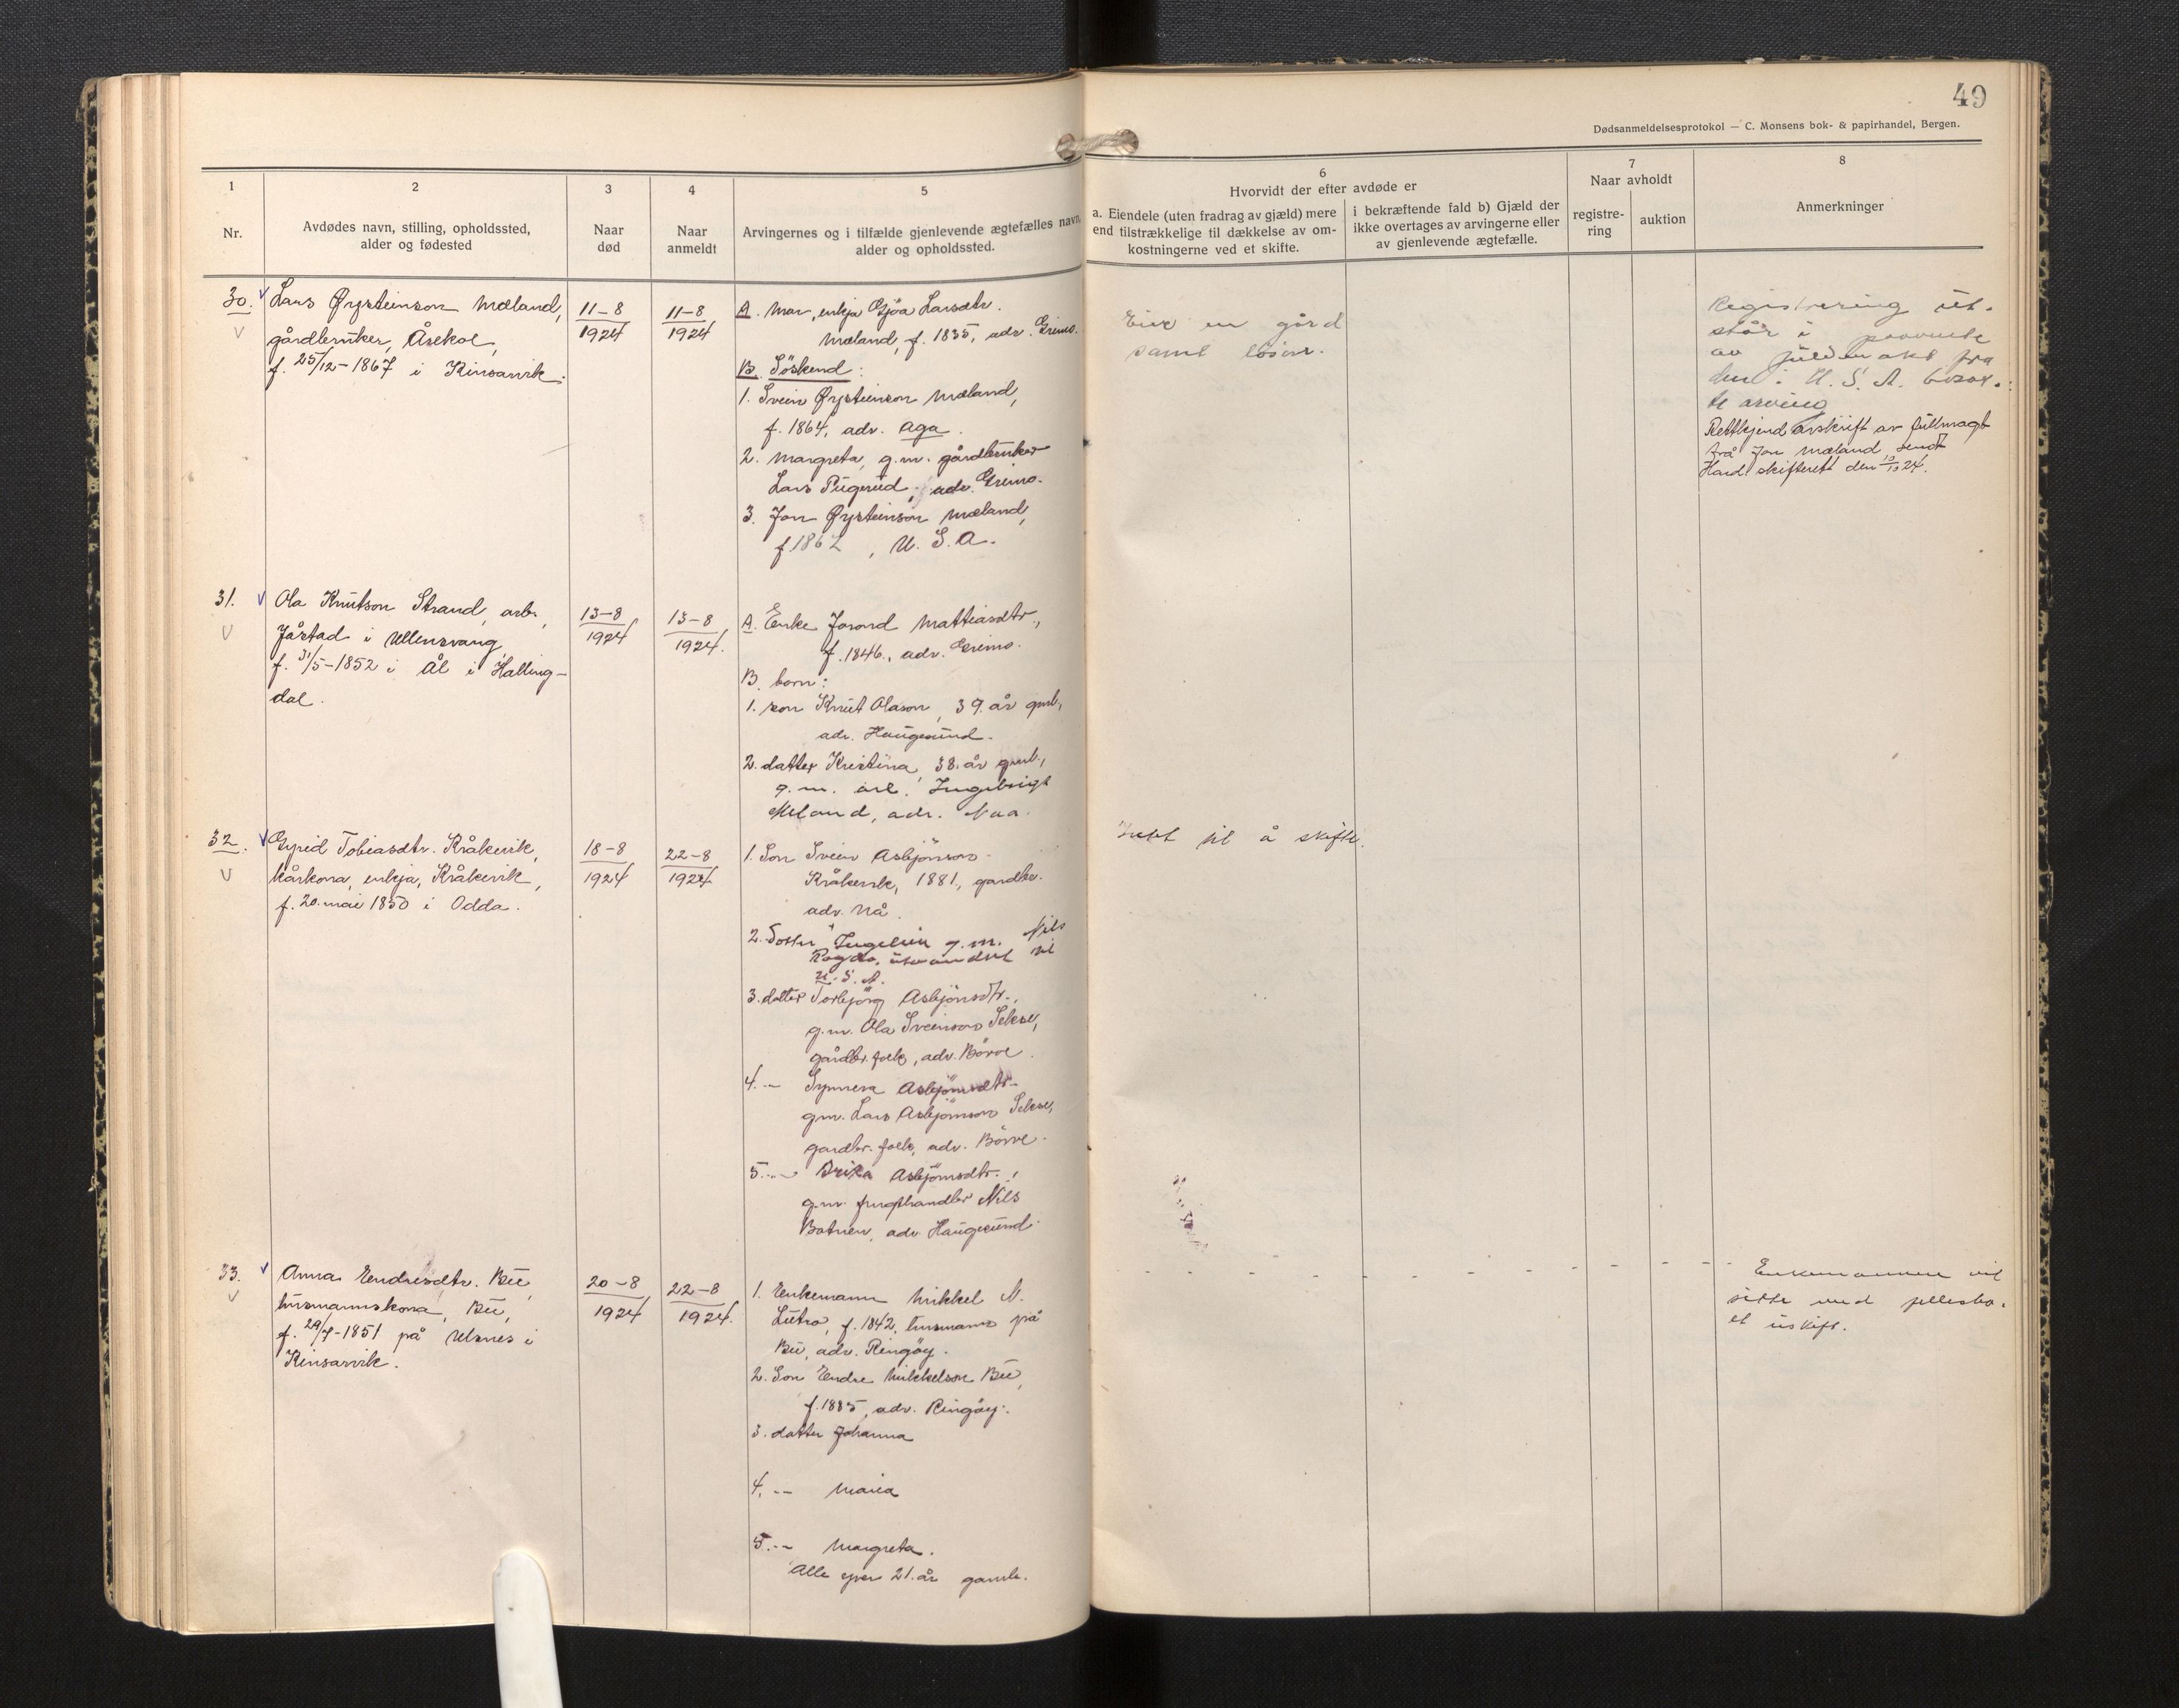 49
Dødsanmeldelsesprotokol — C. Monsens bok- & papirhandel, Bergen.
1
Nr.
2
Avdødes navn, stilling, opholdssted,
alder og fødested
3
Naar
død
4
Naar
anmeldt
5
Arvingernes og i tilfælde gjenlevende ægtefælles navn
alder og opholdssted.
6
Hvorvidt der efter avdøde er
a. Eiendele (uten fradrag av gjæld) mere
end tilstrækkelige til dækkelse av om-
kostningerne ved et skifte.
i bekræftende fald b) Gjæld der
ikke overtages av arvingerne eller
av gjenlevende ægtefælle.
7
Naar avholdt
registre-
ring
auktion
8
Anmerkninger
30.
Lars Øysteinson Mæland,
gårdbruker,
f. 25/12-1867 i Kinsarvik.
11-8
1924
11-8
1924
A. Mor, enkja Gjöa Larsdtr.
Mæland, f. 1835, adr. Grimo.
B. Söskend:
1. Svein Øysteinson Mæland,
f. 1864, adr. Aga.
2. Margreta, g.m. gårdbruker
Lars, adr. Grimo.
3. Jon Øysteinson Mæland,
f. 1862, U. S. A.
Eier en gård
samt lösöre.
Registrering ut-
står i påvente
av fuldmakt fra
den i U. S. A. bosat-
te arving
Rettkjend avskrift av fullmagt
frå Jon Mæland sendt
Hard. skifterett den 13/10 24.
31.
Ola Knutson Strand, arb.,
Jåstad i Ullensvang,
f. 31/5-1852 i Ål i Halling-
dal.
13-8
1924
13-8
1924.
A. Enke Jorond Mattiasdtr.,
f. 1846., adr. Grimo.
B. born:
1. son Knut Olason, 39 år gml,
adr. Haugesund.
2. datter Kristina, 38 år gml.,
g.m. arb. Ingebrigt
Meland, adr. Naa.
32.
Gyrid Tobiasdtr. Kråkevik,
kårkona, enkja, Kråkevik,
f. 20. mai 1850 i Odda.
18-8
1924
22-8
1924
1. Son Svein Asbjönson
Kråkevik, 1881, gardbr.
adr. Nå.
2. Dotter Ingelin g.m. Nils
utvandret til
U. S. A.
3. datter Torbjörg Asbjönsdtr.,
g.m. Ola Sveinson Sekse,
gårdbr. folk, adr. Börve.
4. -- Synneva Asbjönsdtr.
g.m. Lars Asbjörnson Sekse,
gardbr. folk, adr. Börve.
5. -- Brita Asbjörnsdtr.,
g.m. frugthandler Nils
Botnen, adr. Haugesund.
Intet til å skifte.
33.
Anna Endresdtr. Bu,
husmannskona, Bu,
f. 29/7-1851 på Ulsnes i
Kinsarvik.
20-8
1924
22-8
1924.
1. Enkemann Mikkel N.
Lutro, f. 1842, husmann på
Bu, adr. Ringöy.
2. Son Endre Mikkelson Bu,
f. 1885, adr. Ringöy.
3. datter Johanna
4. -- Maria
5. -- Margreta.
Alle yver 21 år gamle.
Enkemannen vil
sitte med fellesbo-
et uskift.